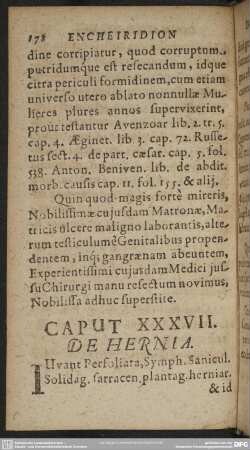 178 ENCHEIRIDION
dine corripiatur, quod corruptum,
putridumque est resecandum, idque
citra periculi formidinem, cum etiam
universo utero ablato nonnullæ Mu-
lieres plures annos supervixerint,
prout testantur Avenzoar lib. 2. tr. 5.
cap. 4. Æginet. lib. 3. cap. 72. Russe-
tus sect. 4. de part. cæsar. cap. 5. fol.
538. Anton. Beniven. lib. de abdit.
morb. causis cap. 11. fol. 155. & alij.
Quin quod magis fortè mireris,
Nobilissimæ cujusdam Matronæ, Ma-
tricis ulcere maligno laborantis, alte-
rum testiculum è Genitalibus propen-
dentem, inq; gangrænam abeuntem,
Experientissimi cujusdam Medici jus-
su Chirurgi manu resectum novimus,
Nobilissa adhuc superstite.
CAPUT XXXVII.
DE HERNIA.
IUvant Perfoliata, Symph. Sanicul.
Solidag. sarracen. plantag. herniar.
& id